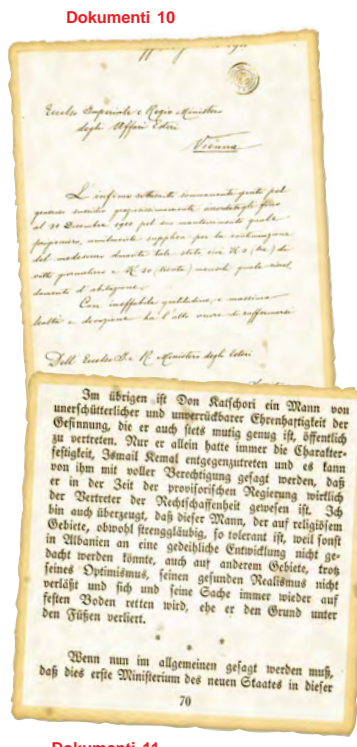 Dokumenti 10
Eccelso Imperiale e Regio Ministero
degli Affari Esteri
Vienna
L'infimo sottoscritto sommamente grato pel
generoso sussidio graziosissimamente
al 31 Decembre 1910 pel suo mantenimento quale
prigioniero, umilmente supplica per la continuazione
del medesimo durante tale stato
vitto giornaliero e K 30 (trenta) mensili quale
d'abitazione.
Con ineffabile gratitudine, e massima
lealtà e devozione ha l'alto onore di raffermarsi
Dell' Eccelso I. e R. Ministero degli Esteri
Im übrigen ist Don Katschori ein Mann von
unerschütterlicher und unverrückbarer Ehrenhaftigkeit der
Gesinnung, die er auch stets mutig genug ist, öffentlich
zu vertreten. Nur er allein hatte immer die Charakter-
festigkeit, Ismail Kemal entgegenzutreten und es kann
von ihm mit voller Berechtigung gesagt werden, daß
er in der Zeit der provisorischen Regierung wirklich
der Vertreter der Rechtschaffenheit gewesen ist. Ich
bin auch überzeugt, daß dieser Mann, der auf religiösem
Gebiete, obwohl strenggläubig, so tolerant ist, weil sonst
in Albanien an eine gedeihliche Entwicklung nicht ge-
dacht werden könnte, auch auf anderem Gebiete, trotz
seines Optimismus, seinen gesunden Realismus nicht
verläßt und sich und seine Sache immer wieder auf
festen Boden retten wird, ehe er den Grund unter
den Füßen verliert.
* * *
Wenn nun im allgemeinen gesagt werden muß,
daß dies erste Ministerium des neuen Staates in dieser
70
Dokumenti 11